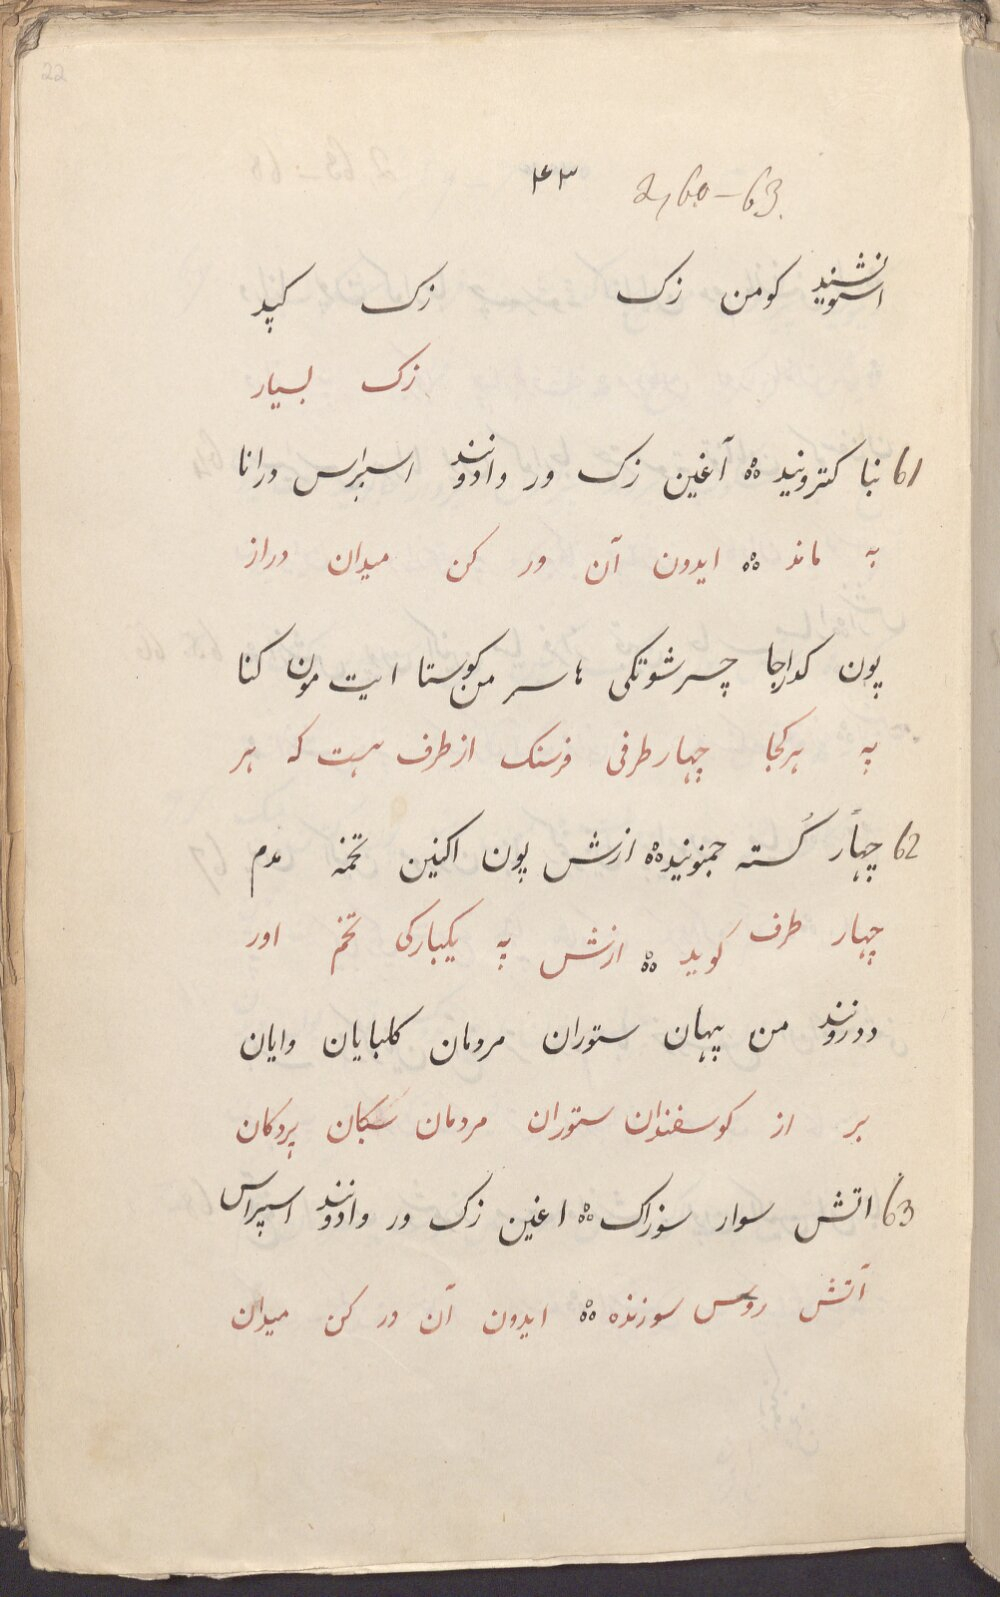 22
۴۳ 2,60-63.
کومن زک زک کپد
زک بسیار
61 نبا کتروnید ٥٥ آغین زک ور وادونند اسپراس درانا
به ماند ٥٥ ایدون آن ور کن میدان دراز
پون کدارجا چسرشوتکی هاسر من کوستا ایت مون کنا
په هر کجا چهار طرفی فرسنک از طرف هست که هر
62 چهار کُسته جمنونید ٥٥ ازش پون اکنین تخمه مدم
چهار طرف کوید ٥٥ ازش په یکبارکی تخم اور
ددرونند من پهان ستوران مردمان کلبایان وایان
بر از کوسفندان ستوران مردمان سکان پردکان
63 اتش سوار سوزاک ٥٥ اغین زک ور وادونند اسپراس
آتش روس سوزنده ٥٥ ایدون آن ور کن میدان